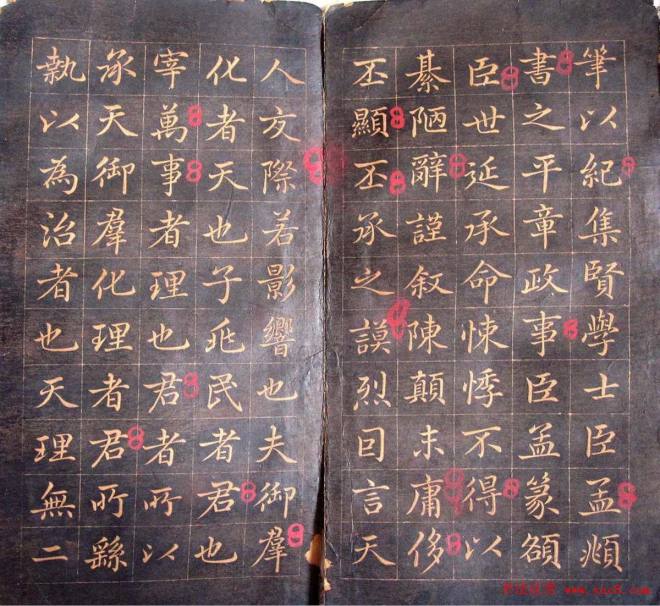 筆以紀集賢學士臣孟頫
書之平章政事臣孟篆額
臣世延承命悚悸不得以
綦陋辭謹叙陳顛末庸侈
丕顯丕承之謨烈回言天
人交際若影響也夫御羣
化者天也子兆民者君也
宰萬事者理也君者所以
承天御羣化理者君所繇
執以為治者也天理無二
书法欣赏 www.yac8.com